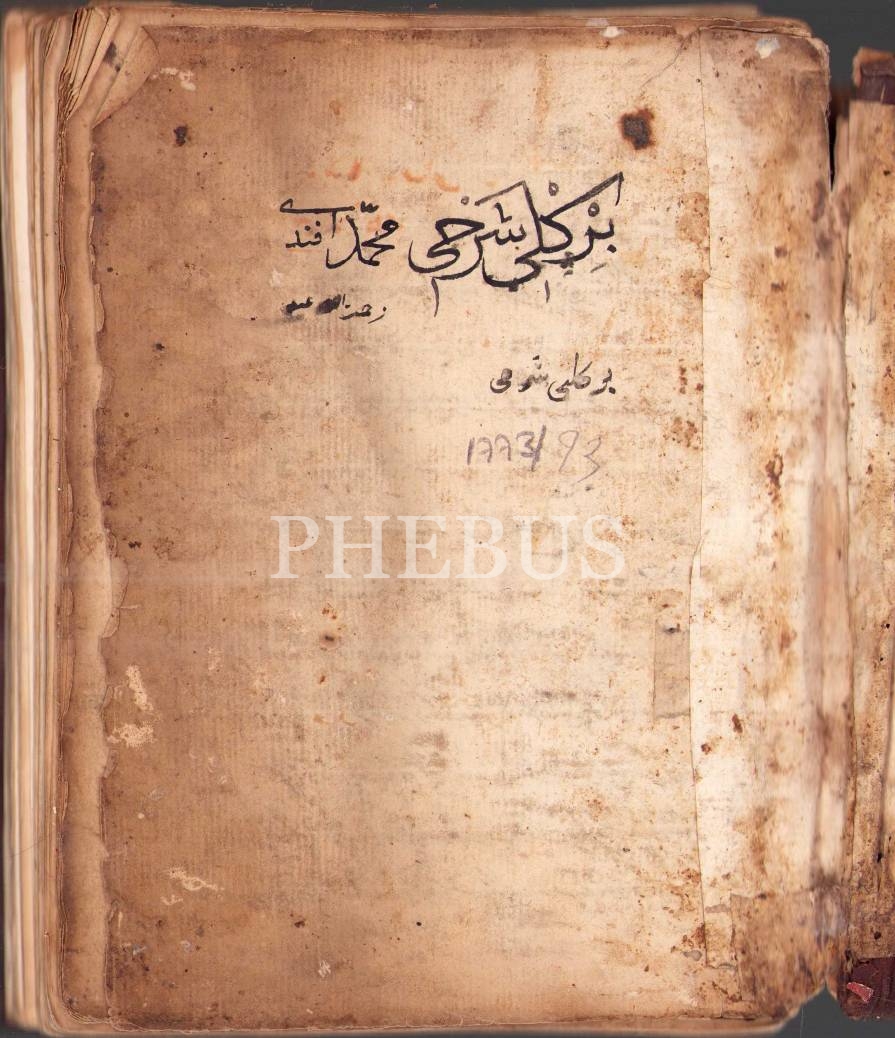 بِرْكْلِي شَرْحِي محمّد افندي
رحمة الله عليه
بركلى شرحى
1773/93
PHEBUS